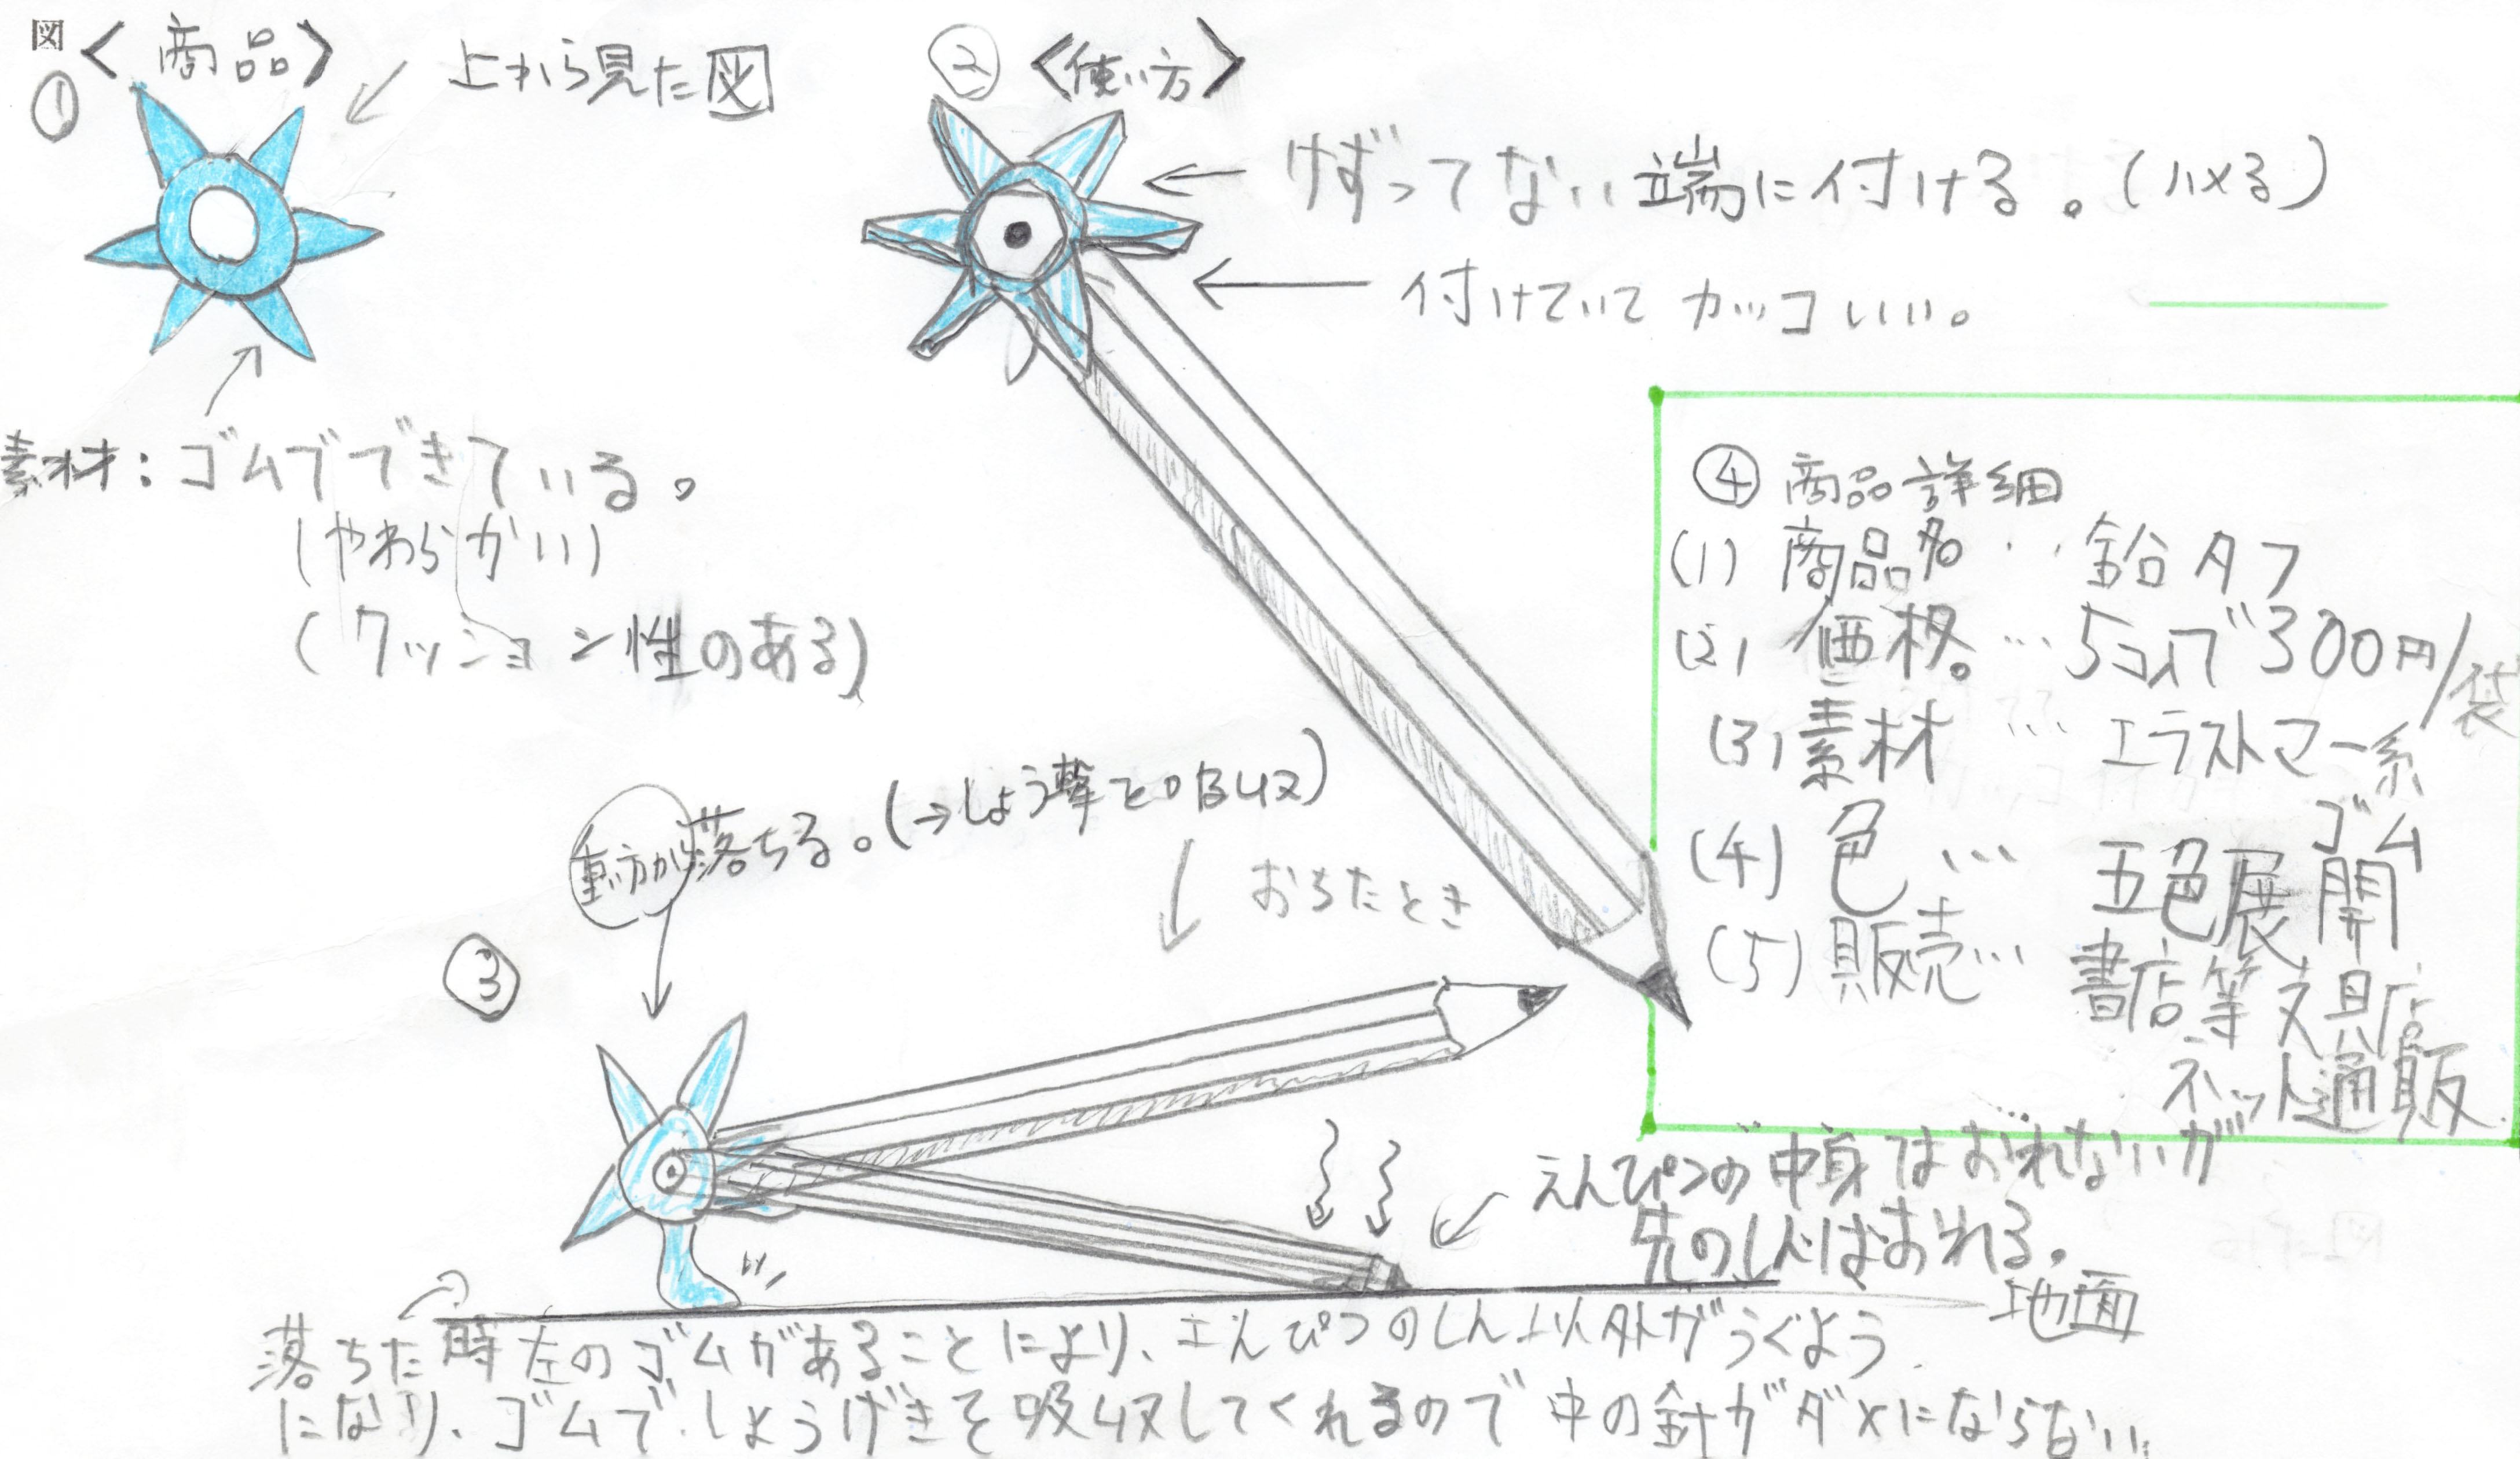 図
① <商品>
上から見た図
素材：ゴムでできている。
(やわらかい)
(クッション性のある)
② <使い方>
けずってない端に付ける。(ハメる)
付けていてカッコいい。
③
重い方が落ちる。(→しょう撃を吸収)
おちたとき
えんぴつの中身はおれないが
先のしんはおれる。
地面
落ちた時左のゴムがあることにより、えんぴつのしん以外がうくよう
になり、ゴムでしょうげきを吸収してくれるので中の針がダメにならない
④ 商品詳細
(1) 商品名… 鉛タフ
(2) 価格。… 5コ入で300円/袋
(3) 素材 … エラストマー系
ゴム
(4) 色 … 五色展開
(5) 販売… 書店等文具店
ネット通販